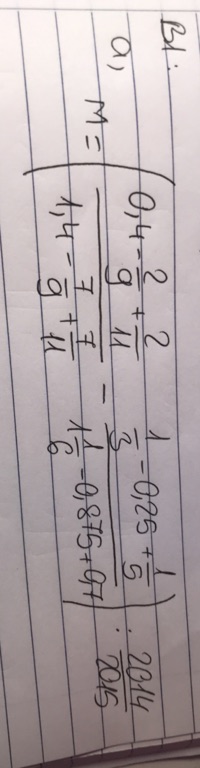 B1:
a,
M = ( (0,4 - 2/9 + 2/11)/(1,4 - 7/9 + 7/11) - (1/3 - 0,25 + 1/5)/(1 1/6 - 0,875 + 0,7) ) : 2014/2015